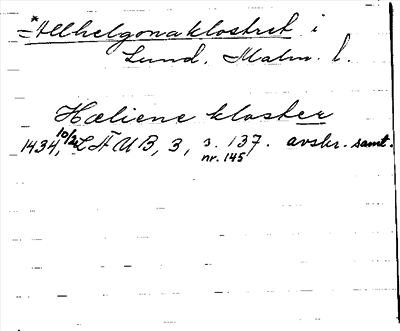 *Allhelgonaklostret i
Lund. Malm. l.
Hæliene kloster
1434, 10/2. LÄUB, 3, s. 137. avskr. samt.
nr. 145